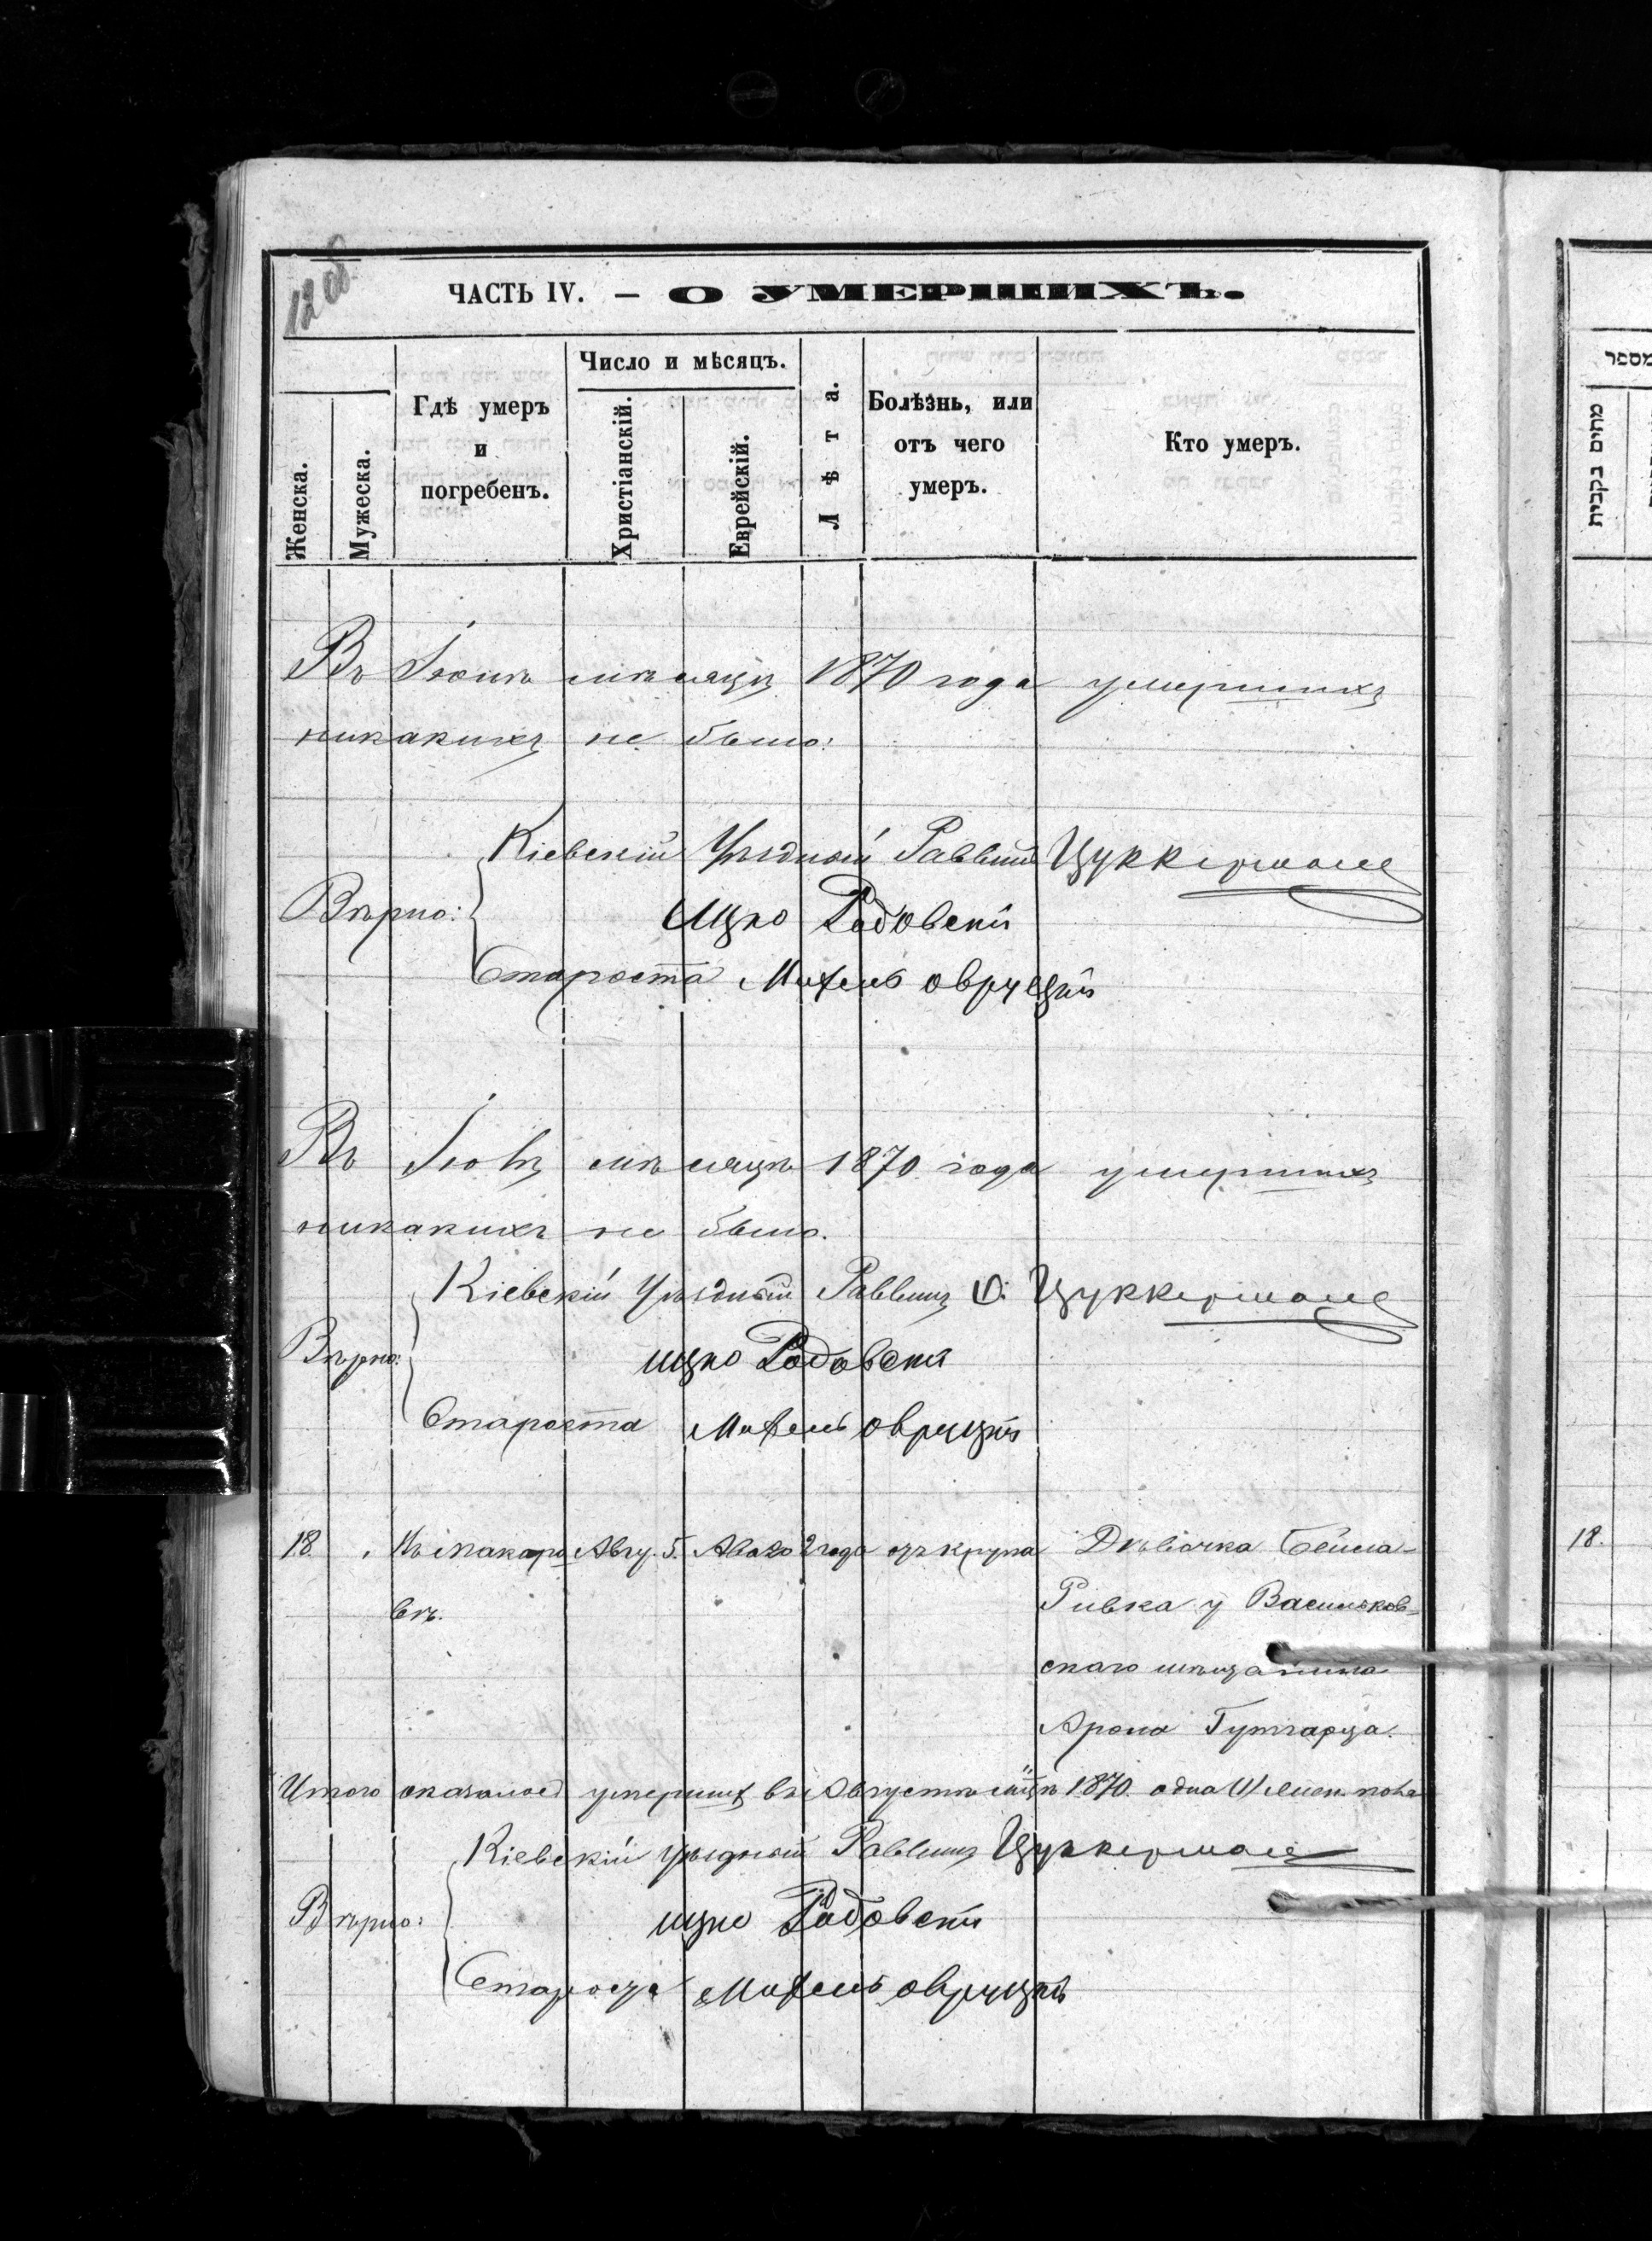 12 об
ЧАСТЬ IV. — О УМЕРШИХЪ.
Женска.
Мужеска.
Гдѣ умеръ
и
погребенъ.
Число и мѣсяцъ.
Христіанскій.
Еврейскій.
Лѣта.
Болѣзнь, или
отъ чего
умеръ.
Кто умеръ.
מספר
מתים נקבות
Въ Іюнѣ мѣсяцѣ 1870 года умершихъ
никакихъ не было.
Кіевскій Уѣздный Раввинъ Цуккерманъ
Вѣрно:
Ицко Радовскій
Староста Михель Овруцкій
Въ Іюлѣ мѣсяцѣ 1870 года умершихъ
никакихъ не было.
Кіевскій Уѣздный Раввинъ Цуккерманъ
Вѣрно:
ицко Радовскій
Староста Михель Овруцкій
18. Въ Макаро Авгу. 5. Ава 20 2 года отъ крупа Дѣвочка Бейла-
вѣ. Ривка у Васильков-
скаго мѣщанина
Арона Гутгарца.
18.
Итого оказалось умершихъ въ Августѣ м̃цѣ 1870. одна (1) женск. пола
Кіевскій уѣздный Раввинъ Цуккерманъ
Вѣрно:
ицко Радовскій
Староста Михель Овруцкій